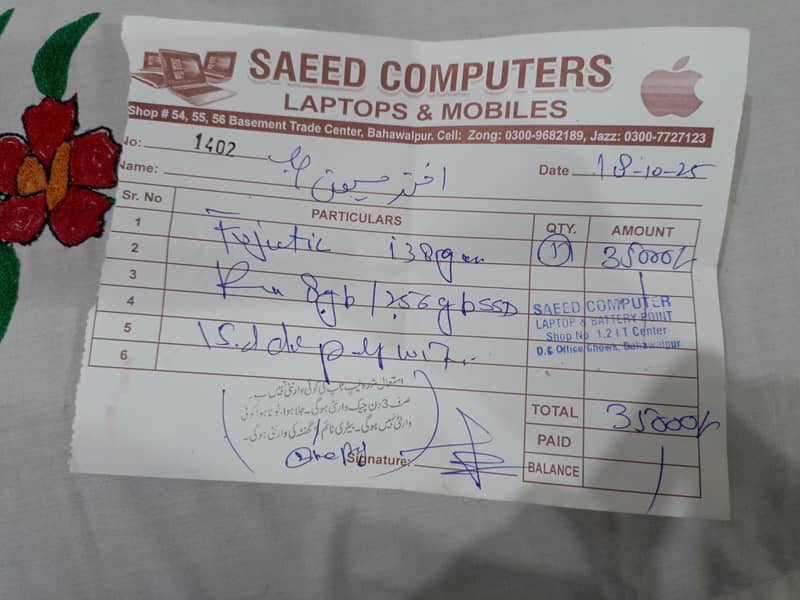 SAEED COMPUTERS
LAPTOPS & MOBILES
Shop # 54, 55, 56 Basement Trade Center, Bahawalpur. Cell: Zong: 0300-9682189, Jazz: 0300-7727123
No: 1402
Name: اختر حسین Date 18-10-25
Sr. No PARTICULARS QTY. AMOUNT
1 i3 8gen 1 35000/-
2
3 8gb / 256gb SSD
4
5
6
SAEED COMPUTER
LAPTOP & BATTERY POINT
Shop No 1,2 I.T Center
D.C Office Chowk, Bahawalpur
استعمال شدہ لیپ ٹاپ کی کوئی وارنٹی نہیں ہے۔
صرف 3 دن چیک وارنٹی ہوگی۔ جلا ہوا، ٹوٹا ہوا کوئی
وارنٹی نہیں ہوگی۔ بیٹری ٹائم گھنٹہ کی وارنٹی ہوگی۔
Signature:
TOTAL 35000/-
PAID
BALANCE